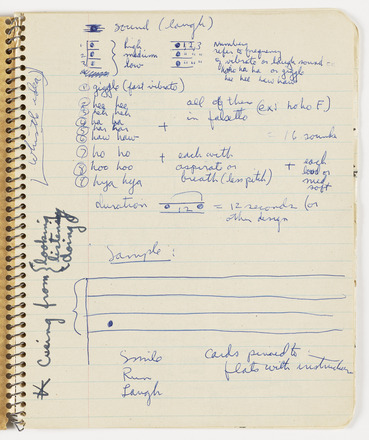 sound (laugh)
high
medium
low
1 2 3
Numbers
refer to frequency
of vibrato or laugh sound =
hoho ha ha or giggle
giggle (fast vibrato)
hee hee
heh heh
ha ha
har har
haw haw
+
all of them (ex: ho ho F)
in falsetto
= 16 sounds
ho ho
hoo hoo
hya hya
+ each with
aspirat or
breath (less pitch)
+ each
loud or
med
soft
duration 12 = 12 seconds (or
other design
* Cueing from { looking
listening
doing
Sample:
Smile
Run
Laugh
cards pinned to
flats with instruction